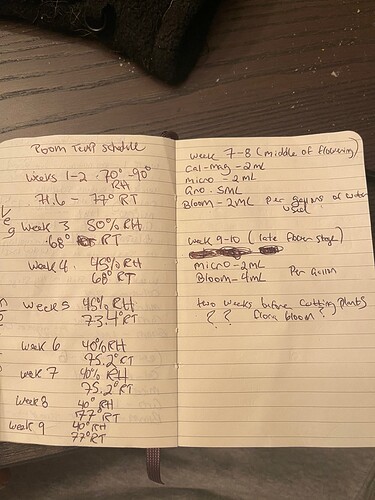 Room Temp schedule
Weeks 1-2 70° -90°
RH
71.6 - 77° RT
Veg
Week 3 50% RH
68° RT
Week 4 45% RH
68° RT
Week 5 45% RH
73.4° RT
Week 6 40% RH
75.2° RT
Week 7 40% RH
75.2° RT
Week 8 40° RH
77° RT
Week 9 40° RH
77° RT
Week 7-8 (middle of flowering)
Cal-mag - 2mL
micro - 2mL
Gro - 5mL
Bloom - 2mL Per gallons of water
used
Week 9-10 (late flower stage)
Micro - 2mL
Bloom - 4mL Per Gallon
two weeks before cutting plants
? ? bloom ?